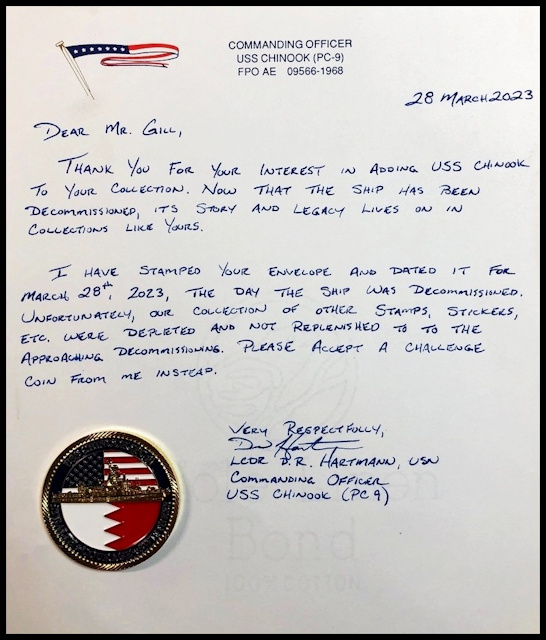 COMMANDING OFFICER
USS CHINOOK (PC-9)
FPO AE 09566-1968
28 MARCH 2023
DEAR MR. GILL,
THANK YOU FOR YOUR INTEREST IN ADDING USS CHINOOK
TO YOUR COLLECTION. NOW THAT THE SHIP HAS BEEN
DECOMMISSIONED, ITS STORY AND LEGACY LIVES ON IN
COLLECTIONS LIKE YOURS.
I HAVE STAMPED YOUR ENVELOPE AND DATED IT FOR
MARCH 28th, 2023, THE DAY THE SHIP WAS DECOMMISSIONED.
UNFORTUNATELY, OUR COLLECTION OF OTHER STAMPS, STICKERS,
ETC. WERE DEPLETED AND NOT REPLENISHED TO TO THE
APPROACHING DECOMMISSIONING. PLEASE ACCEPT A CHALLENGE
COIN FROM ME INSTEAD.
VERY RESPECTFULLY,
LCDR D.R. HARTMANN, USN
COMMANDING OFFICER
USS CHINOOK (PC 9)
Bond
100% COTTON